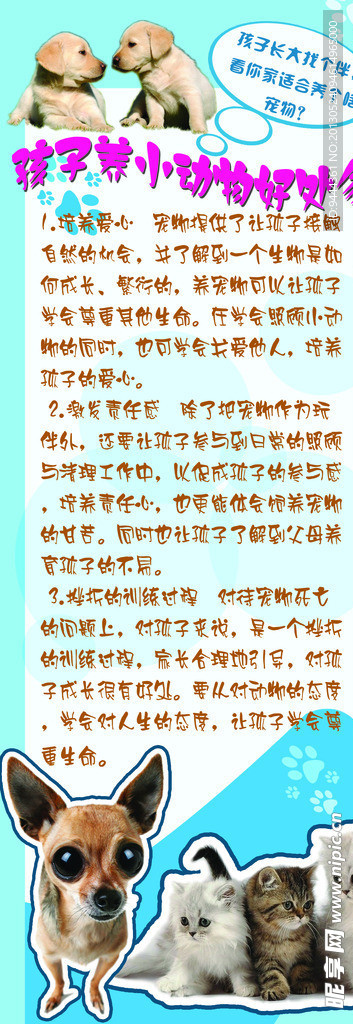 孩子长大找个伴,
看你家适合养个啥
宠物?
孩子养小动物好处多
1.培养爱心 宠物提供了让孩子接触
自然的机会,并了解到一个生物是如
何成长、繁衍的,养宠物可以让孩子
学会尊重其他生命。在学会照顾小动
物的同时,也可学会关爱他人,培养
孩子的爱心。
2.激发责任感 除了把宠物作为玩
伴外,还要让孩子参与到日常的照顾
与清理工作中,以促成孩子的参与感
,培养责任心,也更能体会饲养宠物
的甘苦。同时也让孩子了解到父母养
育孩子的不易。
3.挫折的训练过程 对待宠物死亡
的问题上,对孩子来说,是一个挫折
的训练过程,家长合理地引导,对孩
子成长很有好处。要从对动物的态度
,学会对人生的态度,让孩子学会尊
重生命。
昵享网 www.nipic.cn